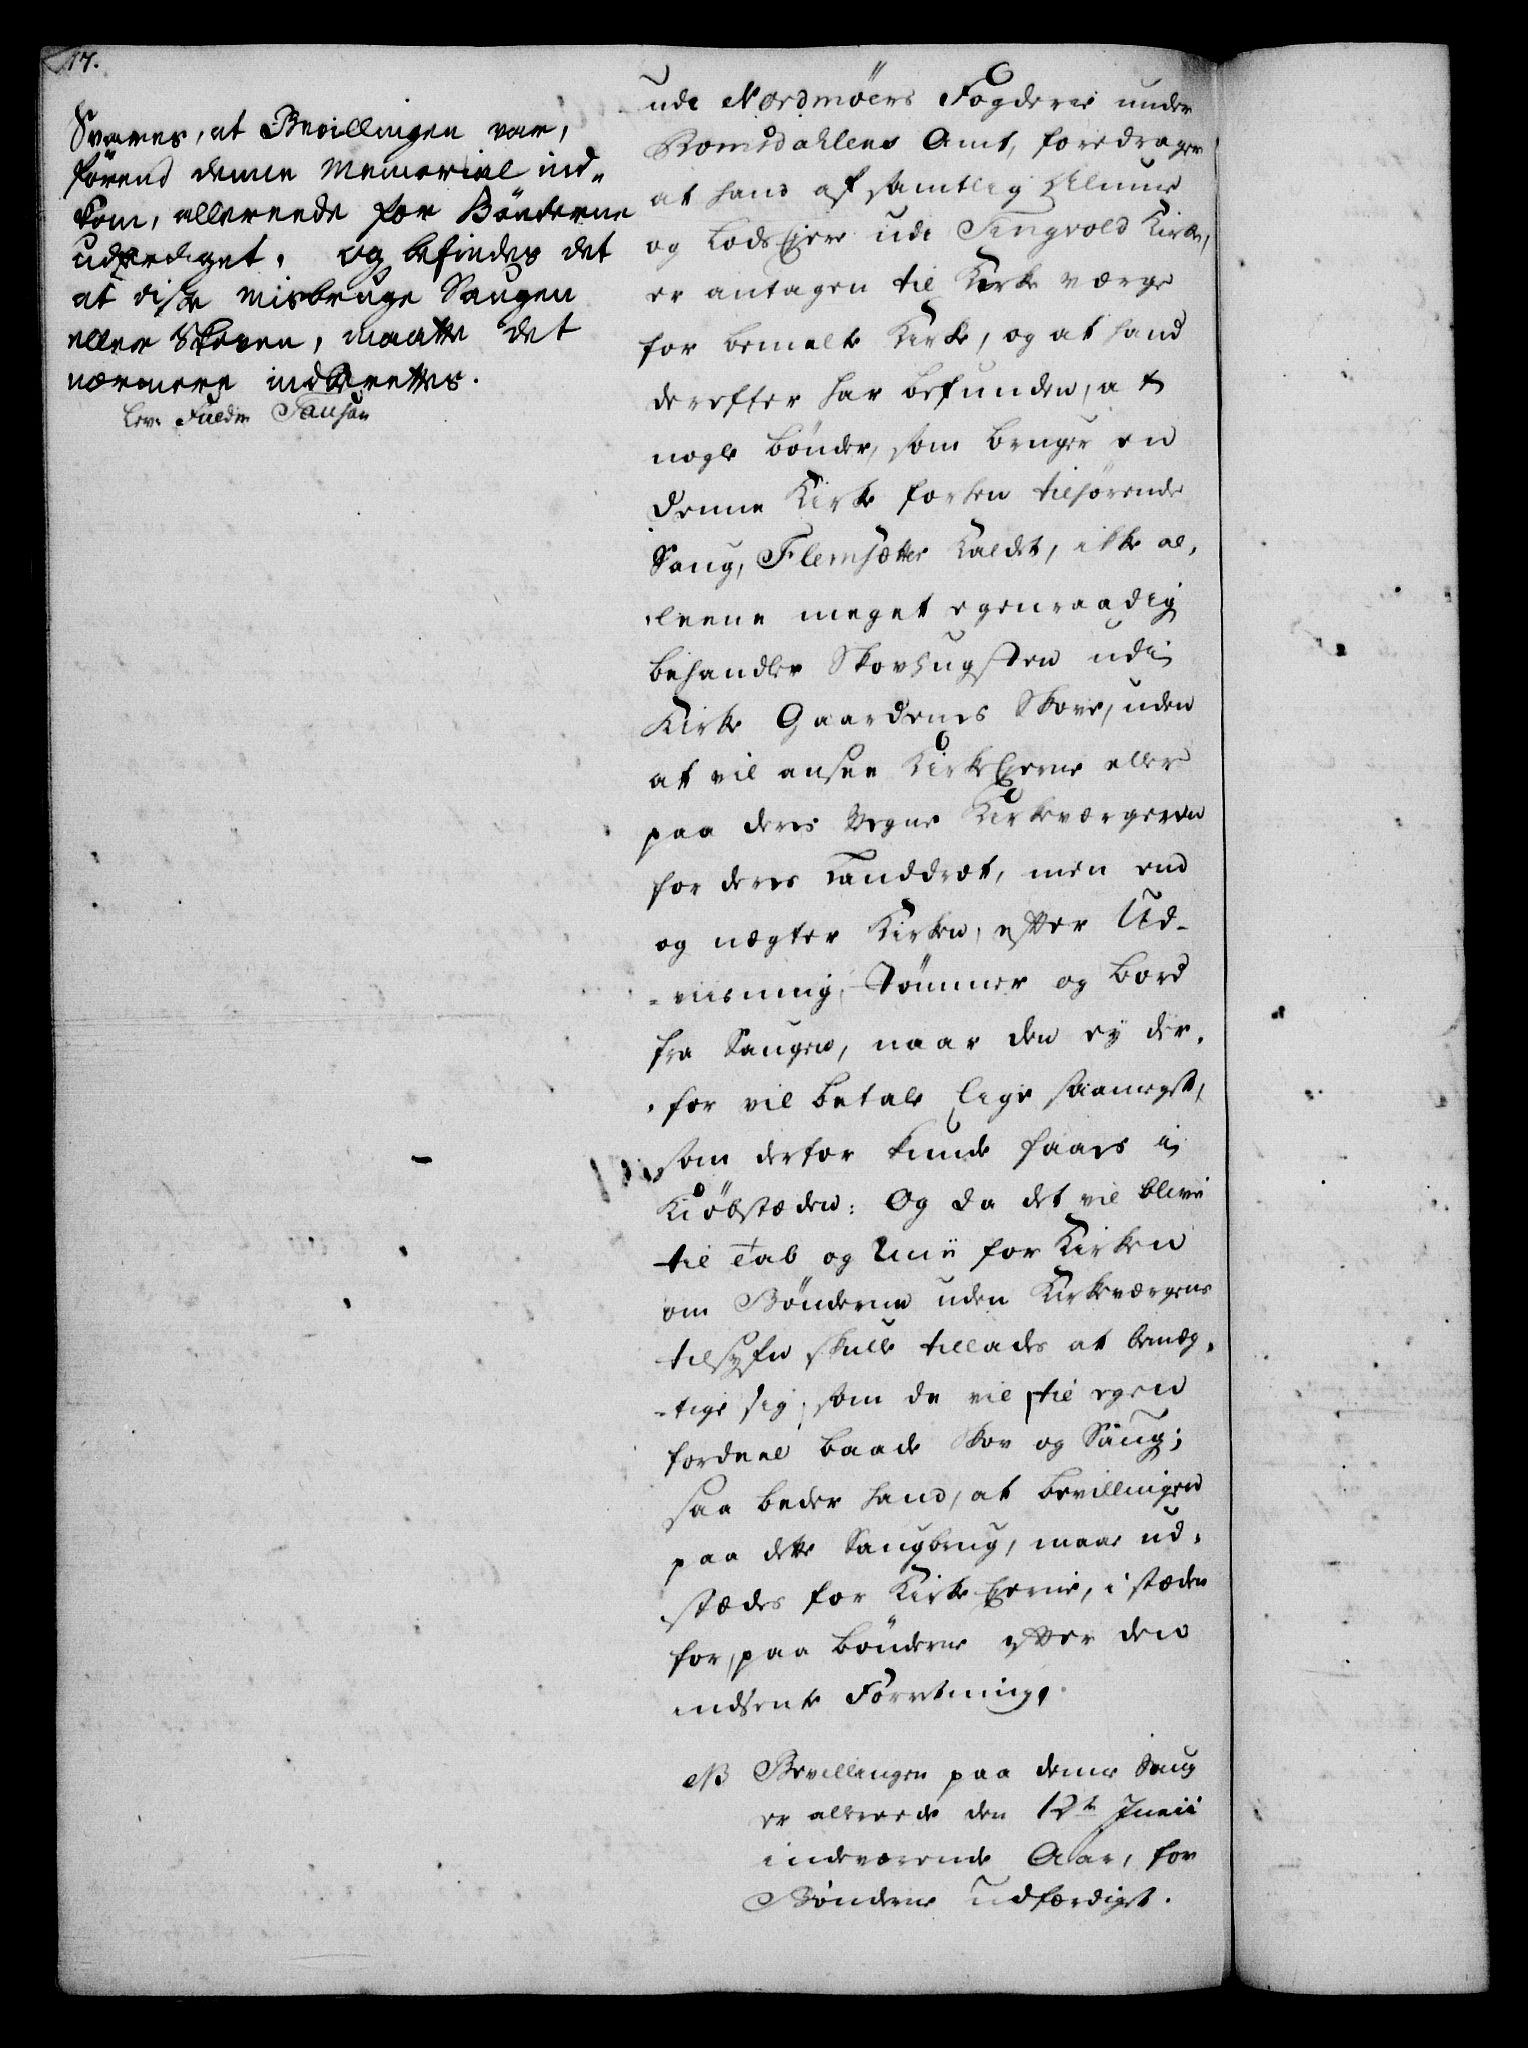 17.
Svares, at Bevillingen var,
førend denne Memorial ind-
kom, allerede for Bønderne
udferdiget. og befindes det
at disse misbruge Saugen
eller Skoven, maatte det
nærmere indberettes.
udi Nordmöers Fogderie under
Romsdahlens Amt, foredrager
at hand af samtlig Almue
og LodsEjere udi Tingvold Kirke,
er antagen til Kirke værge
for bemelte Kirke, og at hand
derefter har befunden, at
nogle bönder, som bruger en
denne Kirke forhen tilhörende
Saug, Flemsætter kaldet, ikke al-
-leene meget egenraadig
behandler Skovhugsten udi
Kirke Gaardenes Skove, uden
at vil ansee KirkeEjerne eller
paa deres Vegne Kirkeværgeren
for deres Landdrot, men end
og nægter Kirken, efter Ud-
-viisning, Tömmer og bord
fra Saugen, naar den ey der-
-for vil betale lige saameget,
som derfor kunde faaes i
Kiöbstæden: Og da det vil blive
til Tab og for Kirken
om Bönderne uden Kirkeværgens
tilsyn skulle tillades at bemæg-
-tige sig, som de vil, til egen
fordeel baade Skov og Saug;
saa beder hand, at bevillingen
paa dette Saugbrug, maae ud-
stædes for Kirke Ejerne, i stæden
for, paa bönderne efter den
indsente Forretning.
NB Bevillingen paa denne Saug
er allerede den 12te Junii
indeværende Aar, for
Bönderne udfærdiget.